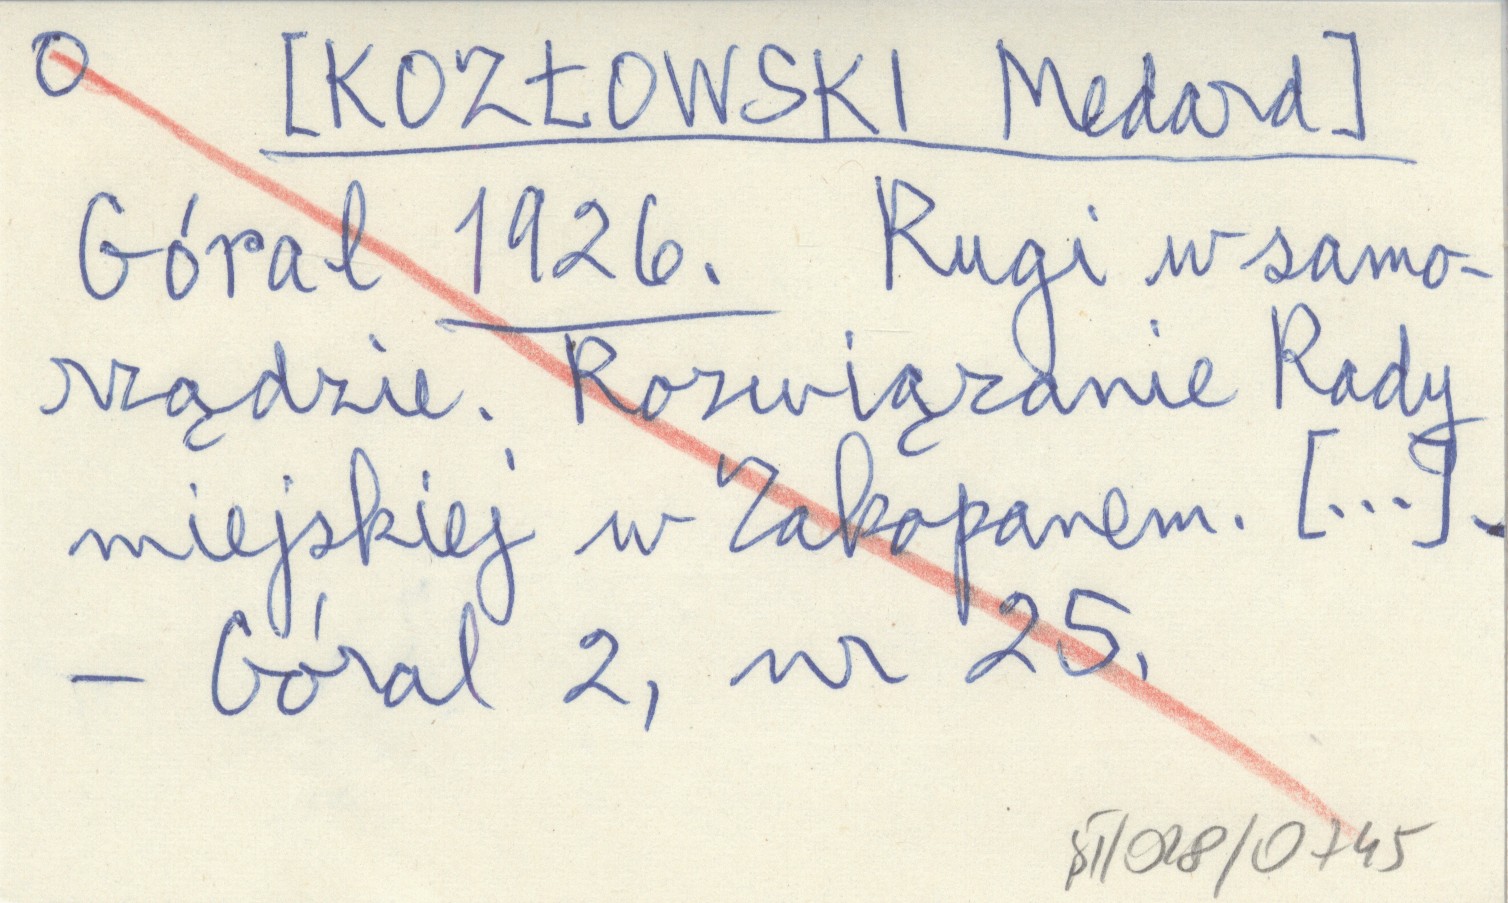 O [KOZŁOWSKI Medard]
Górał 1926. Rugi w samo-
rządzie. Rozwiązanie Rady
miejskiej w Zakopanem. [...].
– Góral 2, nr 25.
/028/0745